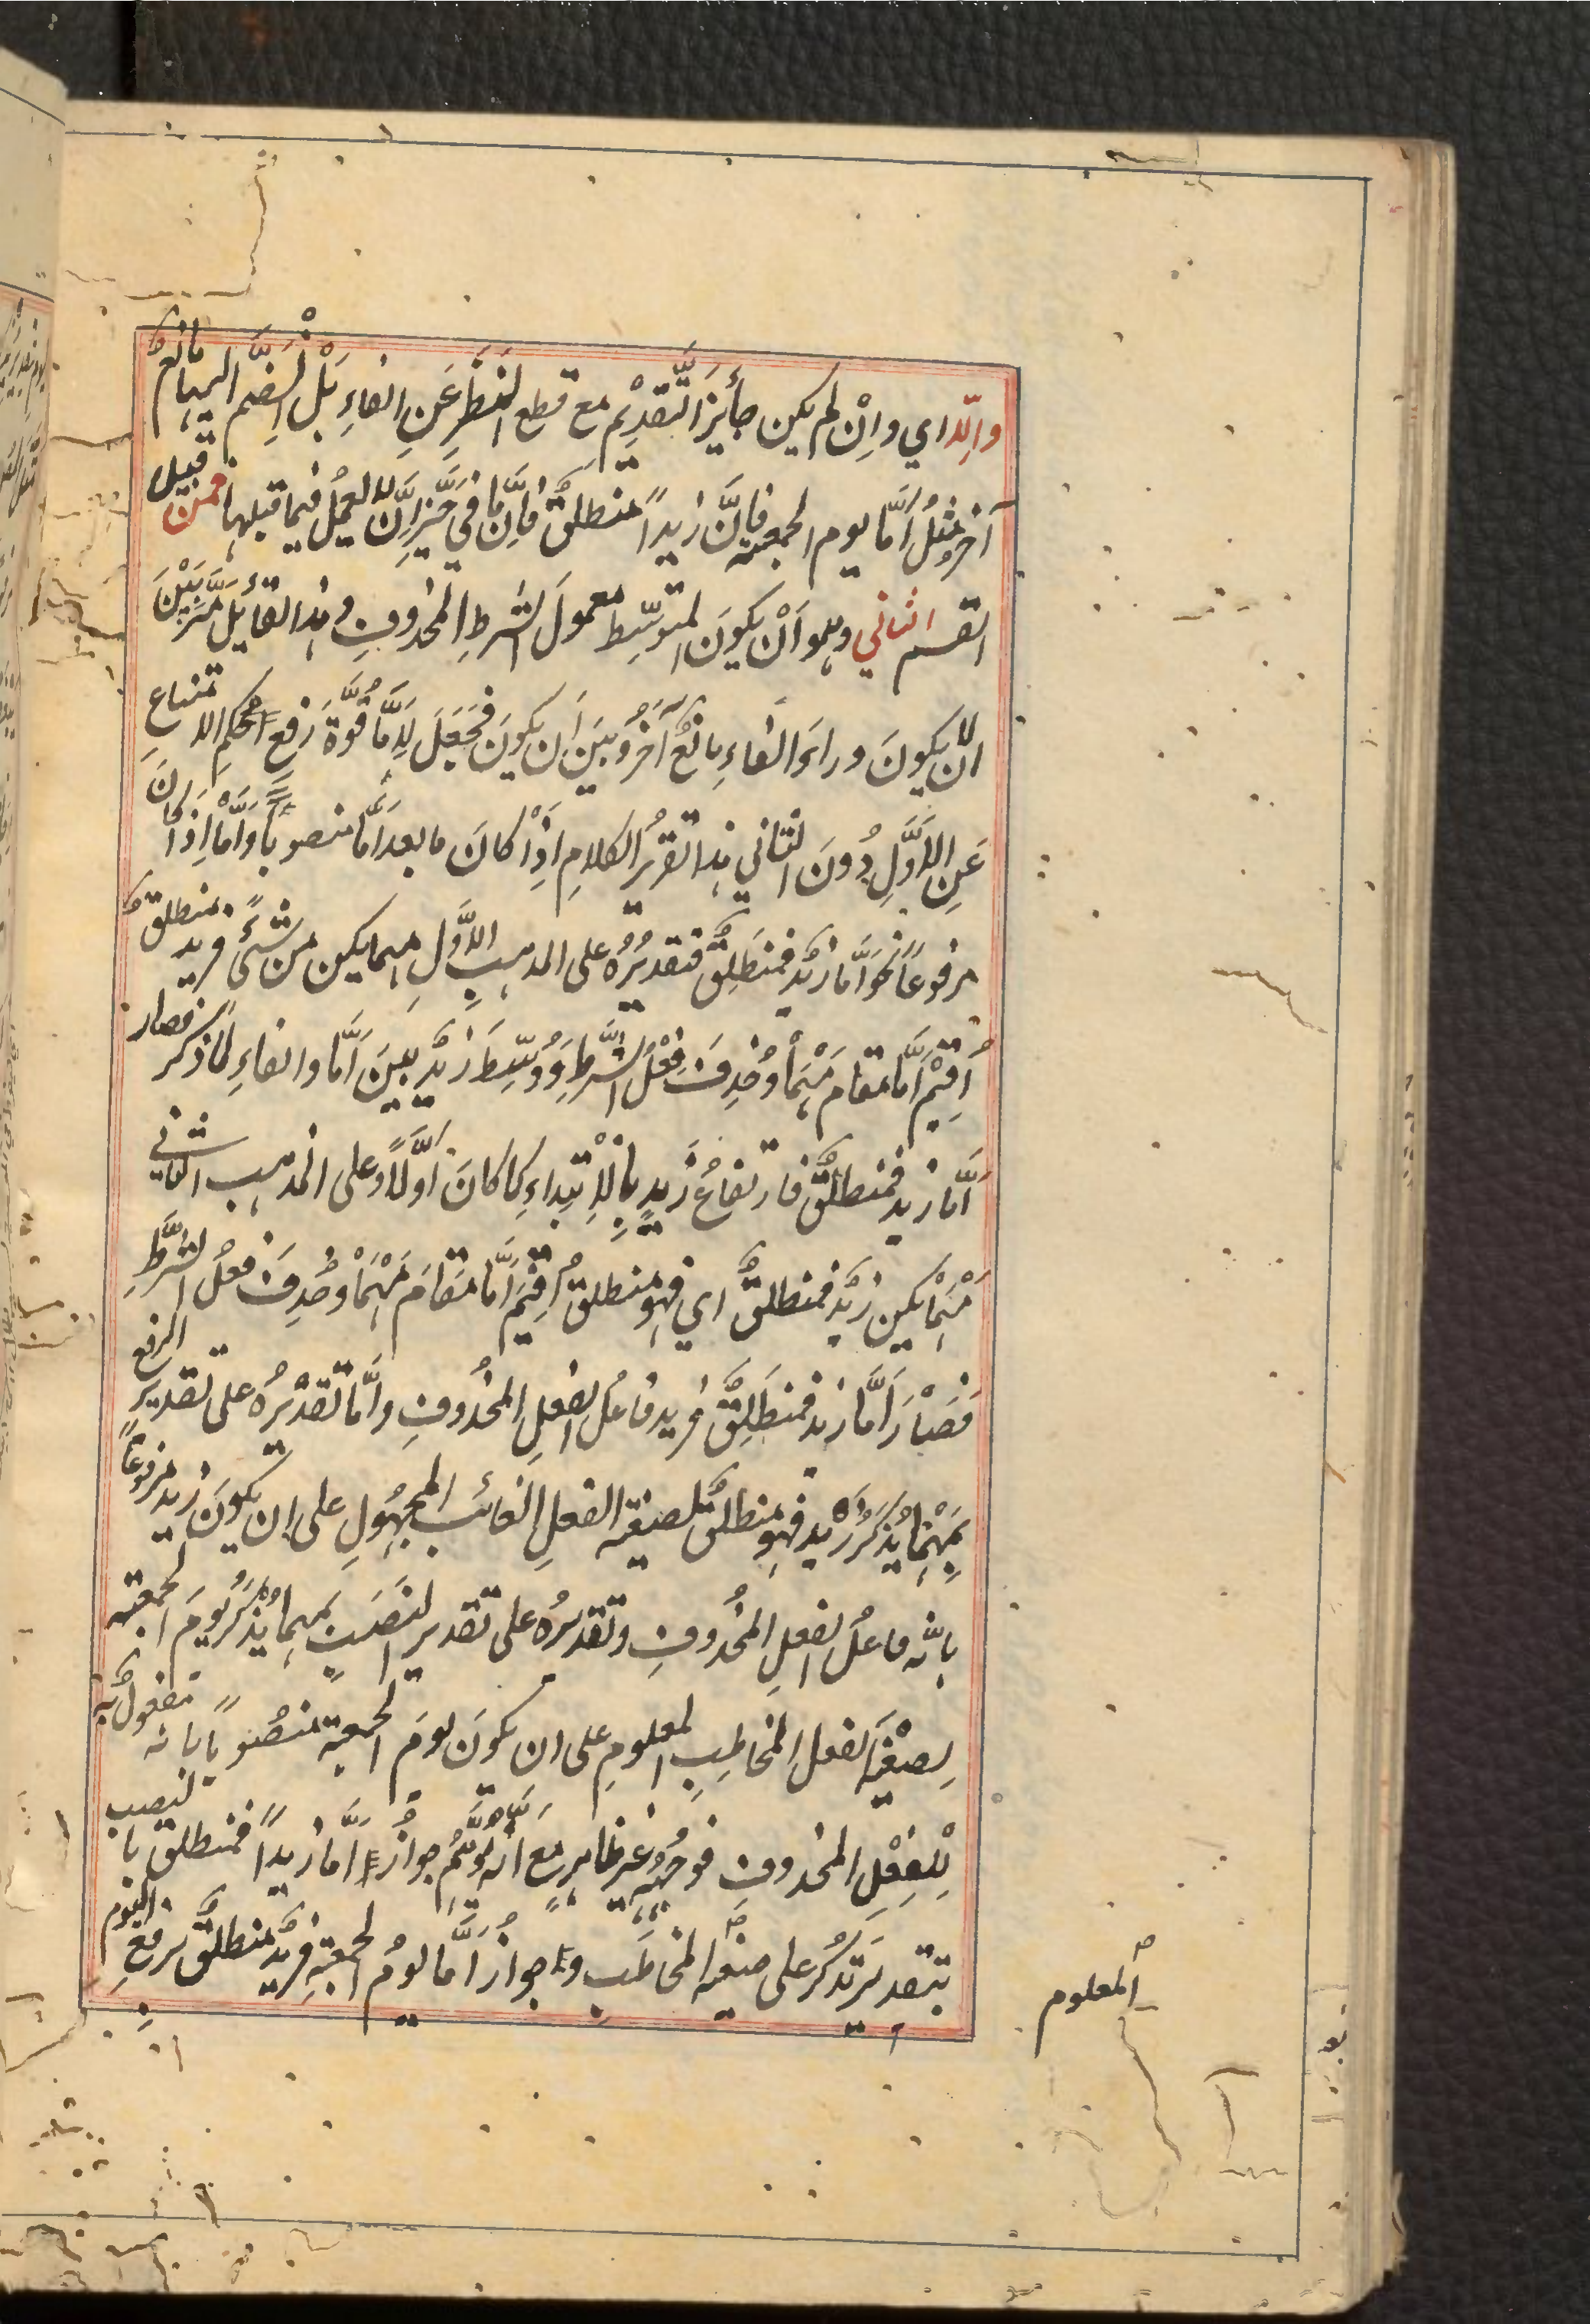 وإلّا اي وإنْ لم يكن جايزَ التَّقديْم مع قطع النَّظَرِ عَنِ الفاءِ بَلْ انضمَّ اليها مانعٌ
آخر مثلُ أمَّا يوم الجمعة فإنَّ زيداً منطلقٌ فإنَّ ما في حَيِّزِ إنَّ لا يعملُ فيما قبلها فمن قبيل
القسم الثاني وهو اَنْ يكونَ المتوسِّط معمولَ الشرطِ المحذوفِ وهذا القائلُ مَيَّزَ بَيْنَ
ان لا يكونَ وراءَ الفاءِ مانعٌ آخرُ وبينَ اَن يكونَ فجَعَلَ لِاَمَّا قُوَّةَ رَفعِ حكمِ الامتناع
عَنِ الاَوَّلِ دُونَ الثاني هذا تقريرُ الكلامِ اِذَا كانَ ما بعد اَمَّا منصوباً وَاَمَّا اِذَا كانَ
مرفوعاً نحو اَمَّا زيدٌ فمنطَلِقٌ فتقديرُهُ على المذهبِ الاَوَّلِ مهما يكن من شئٍ فزيد منطلقٌ
اُقِيْمَ اَمَّا مقام مَهْمَا وحُذِفَ فِعْلُ الشَّرطِ وَوُسِّطَ زيدٌ بينَ اَمَّا والفاءِ لما ذكر فصار
اَمَّا زيد فمنطلقٌ فارتفاعُ زَيدٍ بِالاِبْتِداءِ كما كانَ اَوَّلًا وعلى المذهب الثاني
مَهْمَا يكن زيدٌ فمنطلقٌ اي فهو منطلقٌ اُقِيْمَ اَمَّا مقامَ مَهْمَا وحُذِفَ فعلُ الشَّرطِ
فصَارَ اَمَّا زيد فمنطَلِقٌ فزيد فاعلُ الفعلِ المحذُوفِ وامَّا تقدْيرُهُ على تقدير الرفع
بِمَهْمَا يُذكَرُ زَيد فهو منطلقٌ بصيغة الفعلِ الغائب المجهُولِ على ان يكونَ زيد مرفوعاً
بانّه فاعلُ الفعلِ المحذُوفِ وتقديرُه على تقديرِ النَّصبِ بمهما تُذكُرُ يومَ الجمعة
بصيْغَة الفعل المخاطبِ المعلومِ على ان يكونَ يومَ الجمعة منصُوباً بانه مفعولٌ به
لِلْفِعْلِ المحذوفِ فوجهُه غير ظاهرٍ مع اَنّه يُوْهِمُ جوازَ اَمَّا زيداً فمنطلق بالنصب
بتقدير تَذكُرُ على صيغة المخاطَب وجوازُ اَمَّا يومُ الجمعةِ فزيدٌ منطلقٌ برفعِ اليوم
المعلوم